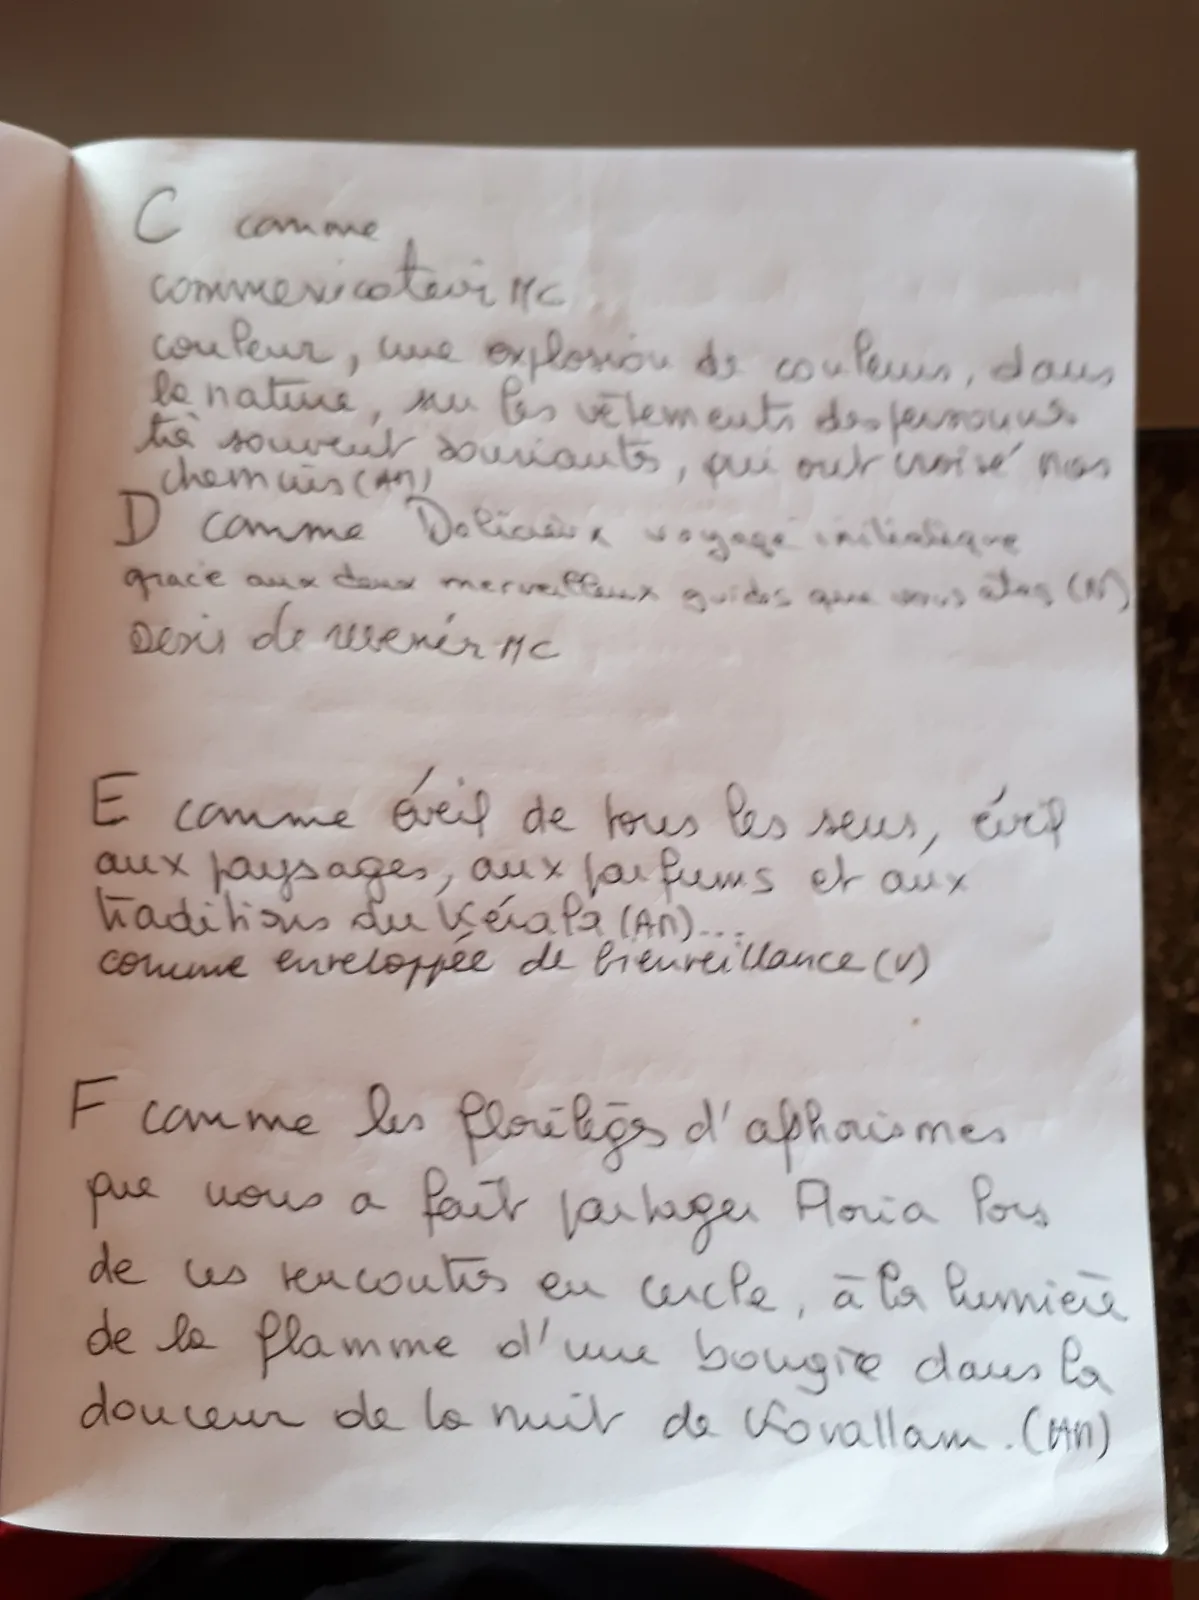 C comme
communicateur MC
couleur, une explosion de couleurs, dans
la nature, sur les vêtements des personnes
très souvent souriantes, qui ont croisé nos
chemins (AM)
D comme Délicieux voyage initiatique
grace aux deux merveilleux guides que vous êtes (N)
Desir de revenir MC
E comme éveil de tous les sens, éveil
aux paysages, aux parfums et aux
traditions du Kérala (AM)...
comme enveloppée de bienveillance (V)
F comme les florilèges d'aphorismes
que nous a fait partager Floria lors
de ces rencontres en cercle, à la lumière
de la flamme d'une bougie dans la
douceur de la nuit de Kovallam. (AM)